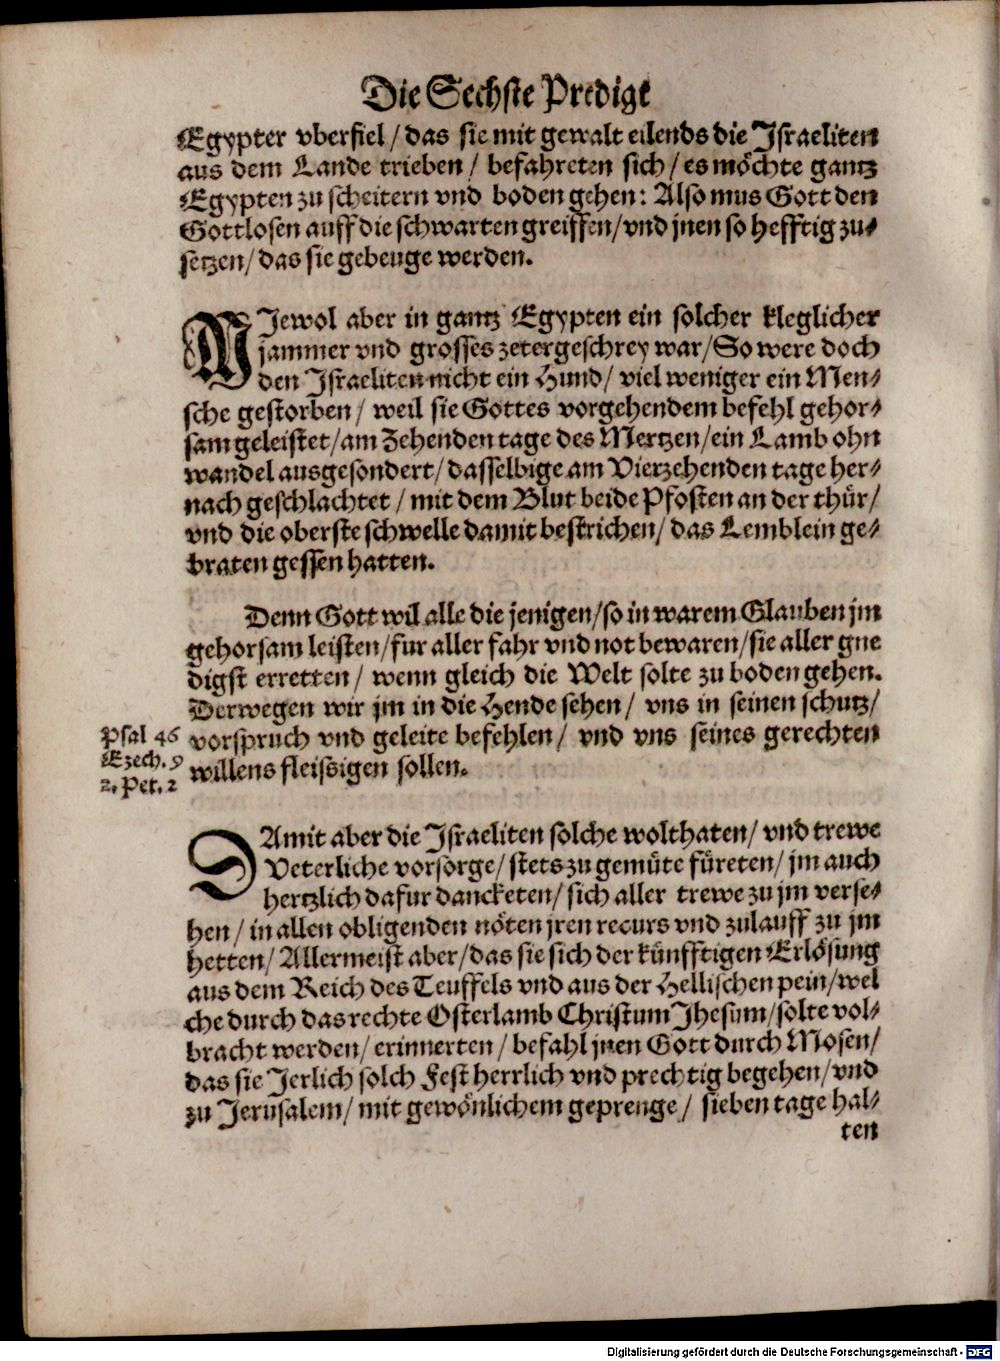 Die Sechste Predigt
Egypter vberfiel / das sie mit gewalt eilends die Israeliten
aus dem Lande trieben / befahreten sich / es möchte gantz
Egypten zu scheitern vnd boden gehen: Also mus Gott den
Gottlosen auff die schwarten greiffen / vnd jnen so hefftig zu-
setzen / das sie gebeuge werden.
WJewol aber in gantz Egypten ein solcher kleglicher
jammer vnd grosses zetergeschrey war / So were doch
den Israeliten nicht ein Hund / viel weniger ein Men-
sche gestorben / weil sie Gottes vorgehendem befehl gehor-
sam geleistet / am Zehenden tage des Mertzen / ein Lamb ohn
wandel ausgesondert / dasselbige am Vierzehenden tage her-
nach geschlachtet / mit dem Blut beide Pfosten an der thür /
vnd die oberste schwelle damit bestrichen / das Lemblein ge-
braten gessen hatten.
Denn Gott wil alle die jenigen / so in warem Glauben jm
gehorsam leisten / fur aller fahr vnd not bewaren / sie aller gne
digst erretten / wenn gleich die Welt solte zu boden gehen.
Derwegen wir jm in die Hende sehen / vns in seinen schutz /
Psal 46 vorspruch vnd geleite befehlen / vnd vns seines gerechten
Ezech. 9 willens fleissigen sollen.
2. Pet. 2
DAmit aber die Israeliten solche wolthaten / vnd trewe
Veterliche vorsorge / stets zu gemüte füreten / jm auch
hertzlich dafur dancketen / sich aller trewe zu jm verse-
hen / in allen obligenden nöten jren recurs vnd zulauff zu jm
hetten / Allermeist aber / das sie sich der künfftigen Erlösung
aus dem Reich des Teuffels vnd aus der Hellischen pein / wel
che durch das rechte Osterlamb Christum Jhesum / solte vol-
bracht werden / erinnerten / befahl jnen Gott durch Mosen /
das sie Jerlich solch Fest herrlich vnd prechtig begehen / vnd
zu Jerusalem / mit gewönlichem geprenge / sieben tage hal-
ten
Digitalisierung gefördert durch die Deutsche Forschungsgemeinschaft - DFG